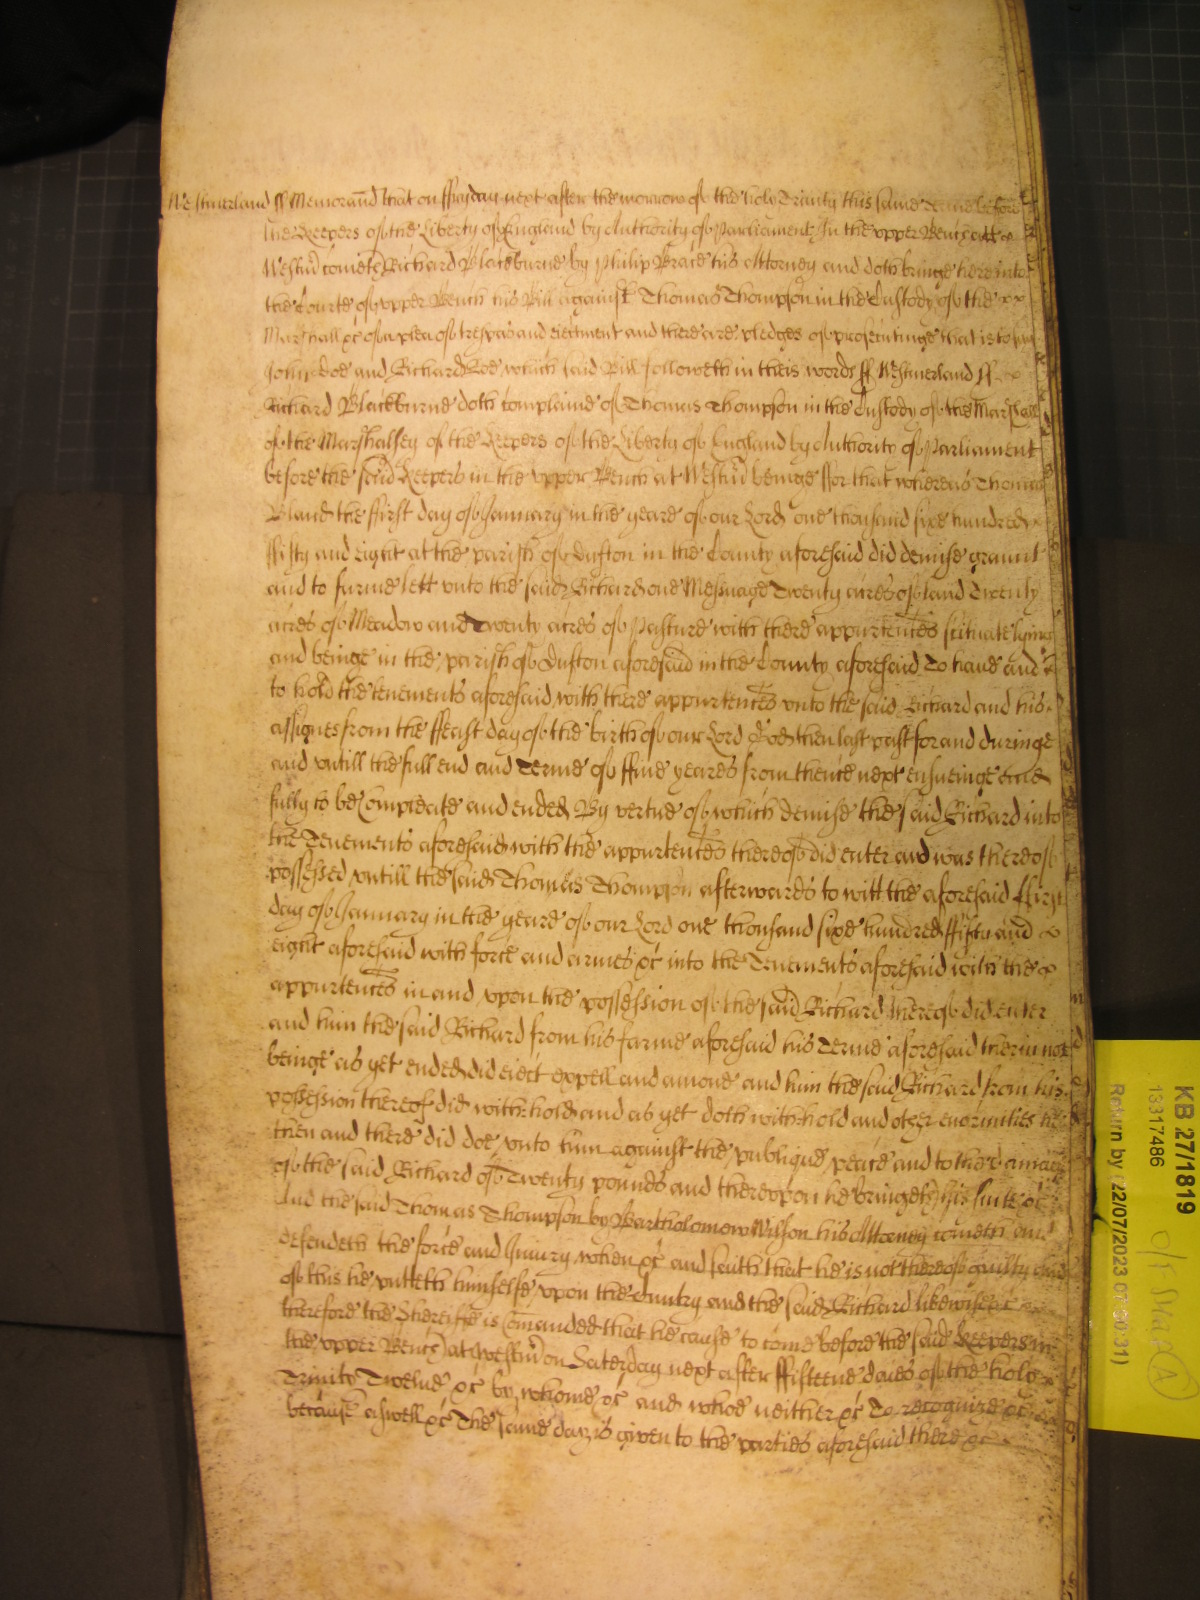 Westmerland ss Memorand that on ffryday next after the morrow of the holy Trinity this same Terme before
the Keepers of the Liberty of England by Authority of Parliament In the vpper Bench att
Westm cometh Richard Blackburne by Philip Brace his Attorney and doth bringe here into
the Courte of vpper Bench his Bill against Thomas Thompson in the Custody of the
Marshall &c of a plea of trespas and eiectment and there are pledges of prosecutinge that is to say
John Doe and Richard Roe which said Bill followeth in theis words ss Westmerland ss
Richard Blackburne doth complaine of Thomas Thompson in the Custody of the Marshall
of the Marshalsey of the Keepers of the Liberty of England by Authority of Parliament
before the said Keepers in the vpper Bench at Westm beinge ffor that whereas Thomas
Bland the ffirst day of January in the yeare of our Lord one thousand sixe hundred
ffifty and eight at the parish of Dufton in the County aforesaid did demise graunt
and to farme lett vnto the said Richard one Messuage Twenty acres of land Twenty
acres of Meadow and Twenty acres of Pasture with there appurtences scituate lying
and beinge in the parish of Dufton aforesaid in the County aforesaid To haue and
to hold the tenements aforesaid with there appurtences vnto the said Richard and his
assignes from the ffeast day of the birth of our Lord God then last past for and duringe
and vntill the full end and Terme of ffiue yeares from thence next ensueinge and
fully to be Compleate and ended By vertue of which demise the said Richard into
the Tenements aforesaid with the appurtences thereof did enter and was thereof
possessed vntill the said Thomas Thompson afterwards to witt the aforesaid ffirst
day of January in the yeare of our Lord one thousand sixe hundred ffifty and
eight aforesaid with force and armes &c into the Tenements aforesaid with the
appurtences in and vpon the possession of the said Richard thereof did enter
and him the said Richard from his farme aforesaid his Terme aforesaid therin not
beinge as yet ended did eiect expell and amoue and him the said Richard from his
possession thereof did with-hold and as yet doth with-hold and other enormities he
then and there did doe vnto him against the publique peace and to the damage
of the said Richard of Twenty pounds and therevpon he bringeth his suite &c
And the said Thomas Thompson by Bartholomew Wilson his Attorney cometh and
defendeth the force and Iniury when &c and saith that he is not thereof guilty and
of this he putteth himselfe vpon the Cuntry and the said Richard likewise &c
therefore the Shereiffe is Comanded that he cause to come before the said Keepers in
the vpper Bench at Westm on Saterday next after ffifteene daies of the holy
Trinity Twelue &c by whome &c and whoe neither &c To recognize &c
because aswell &c The same day is given to the parties aforesaid there &c
KB 27/1819
13317486
Return by (22/07/2023